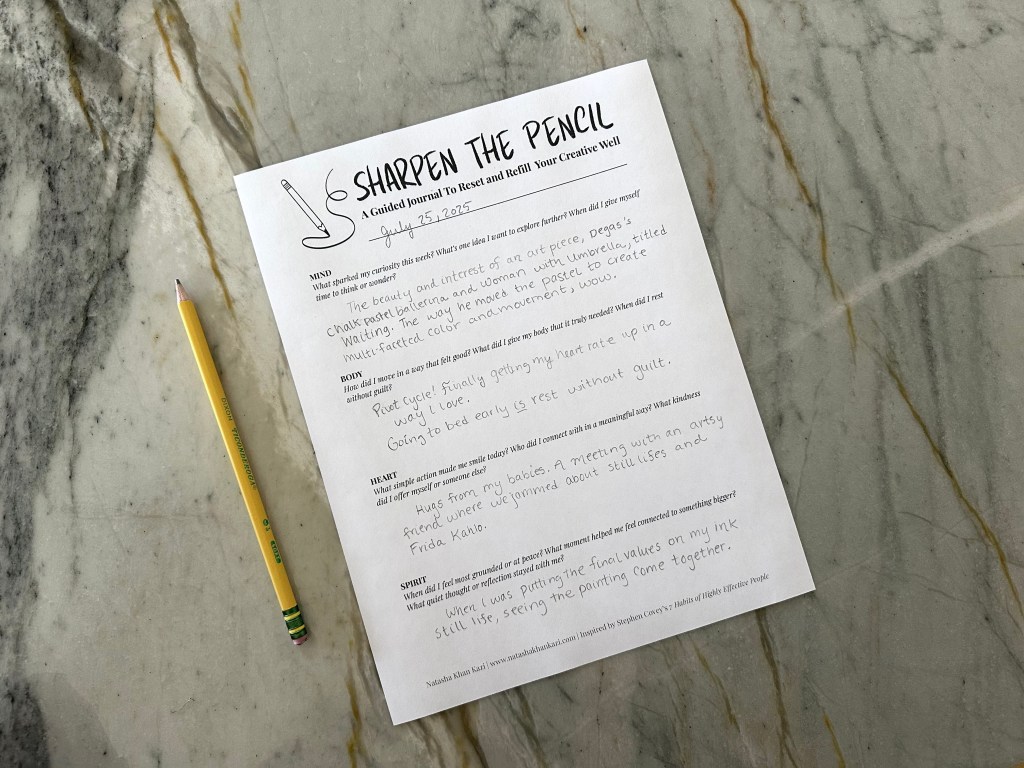 SHARPEN THE PENCIL
A Guided Journal To Reset and Refill Your Creative Well
July 25, 2025
MIND
What sparked my curiosity this week? What's one idea I want to explore further? When did I give myself
time to think or wonder?
The beauty and interest of an art piece, Degas's
Chalk pastel ballerina and woman with umbrella, titled
Waiting. The way he moved the pastel to create
multi-faceted color and movement, wow.
BODY
How did I move in a way that felt good? What did I give my body that it truly needed? When did I rest
without guilt?
Pivot cycle! Finally getting my heart rate up in a
way I love.
Going to bed early is rest without guilt.
HEART
What simple action made me smile today? Who did I connect with in a meaningful way? What kindness
did I offer myself or someone else?
Hugs from my babies. A meeting with an artsy
friend where we jammed about still lifes and
Frida Kahlo.
SPIRIT
When did I feel most grounded or at peace? What moment helped me feel connected to something bigger?
What quiet thought or reflection stayed with me?
When I was putting the final values on my ink
still life, seeing the painting come together.
Natasha Khan Kazi | www.natashakhankazi.com | Inspired by Stephen Covey's 7 Habits of Highly Effective People
DIXON TICONDEROGA